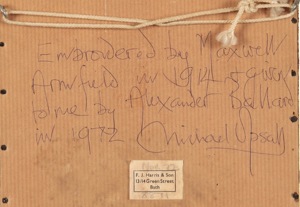 Embroidered by Maxwell
Armfield in 1914 & given
to me by Alexander Ballard
in 1972 Michael Upsall
F. J. Harris & Son
13/14 Green Street
Bath